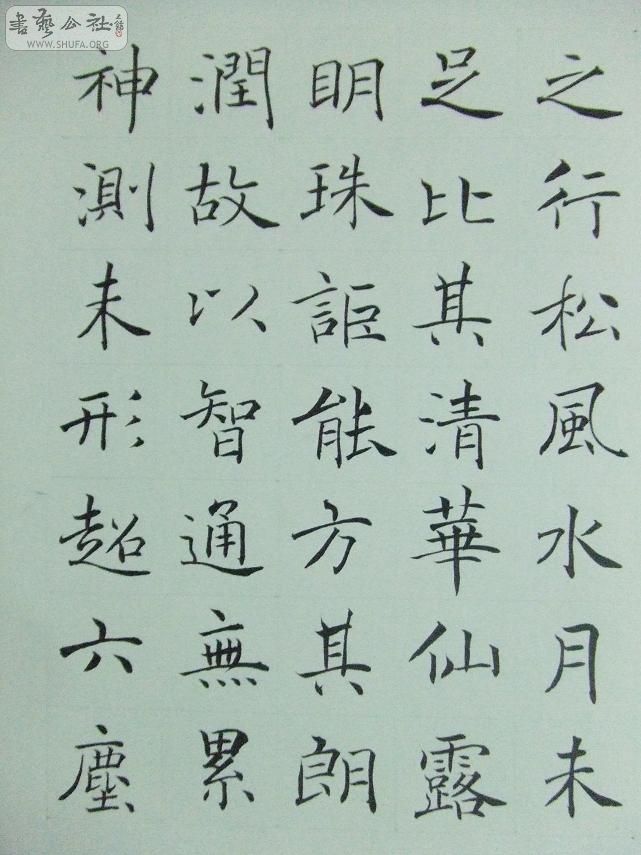 之行松風水月未
足比其清華仙露
明珠詎能方其朗
潤故以智通無累
神測未形超六塵
書藝公社
WWW.SHUFA.ORG